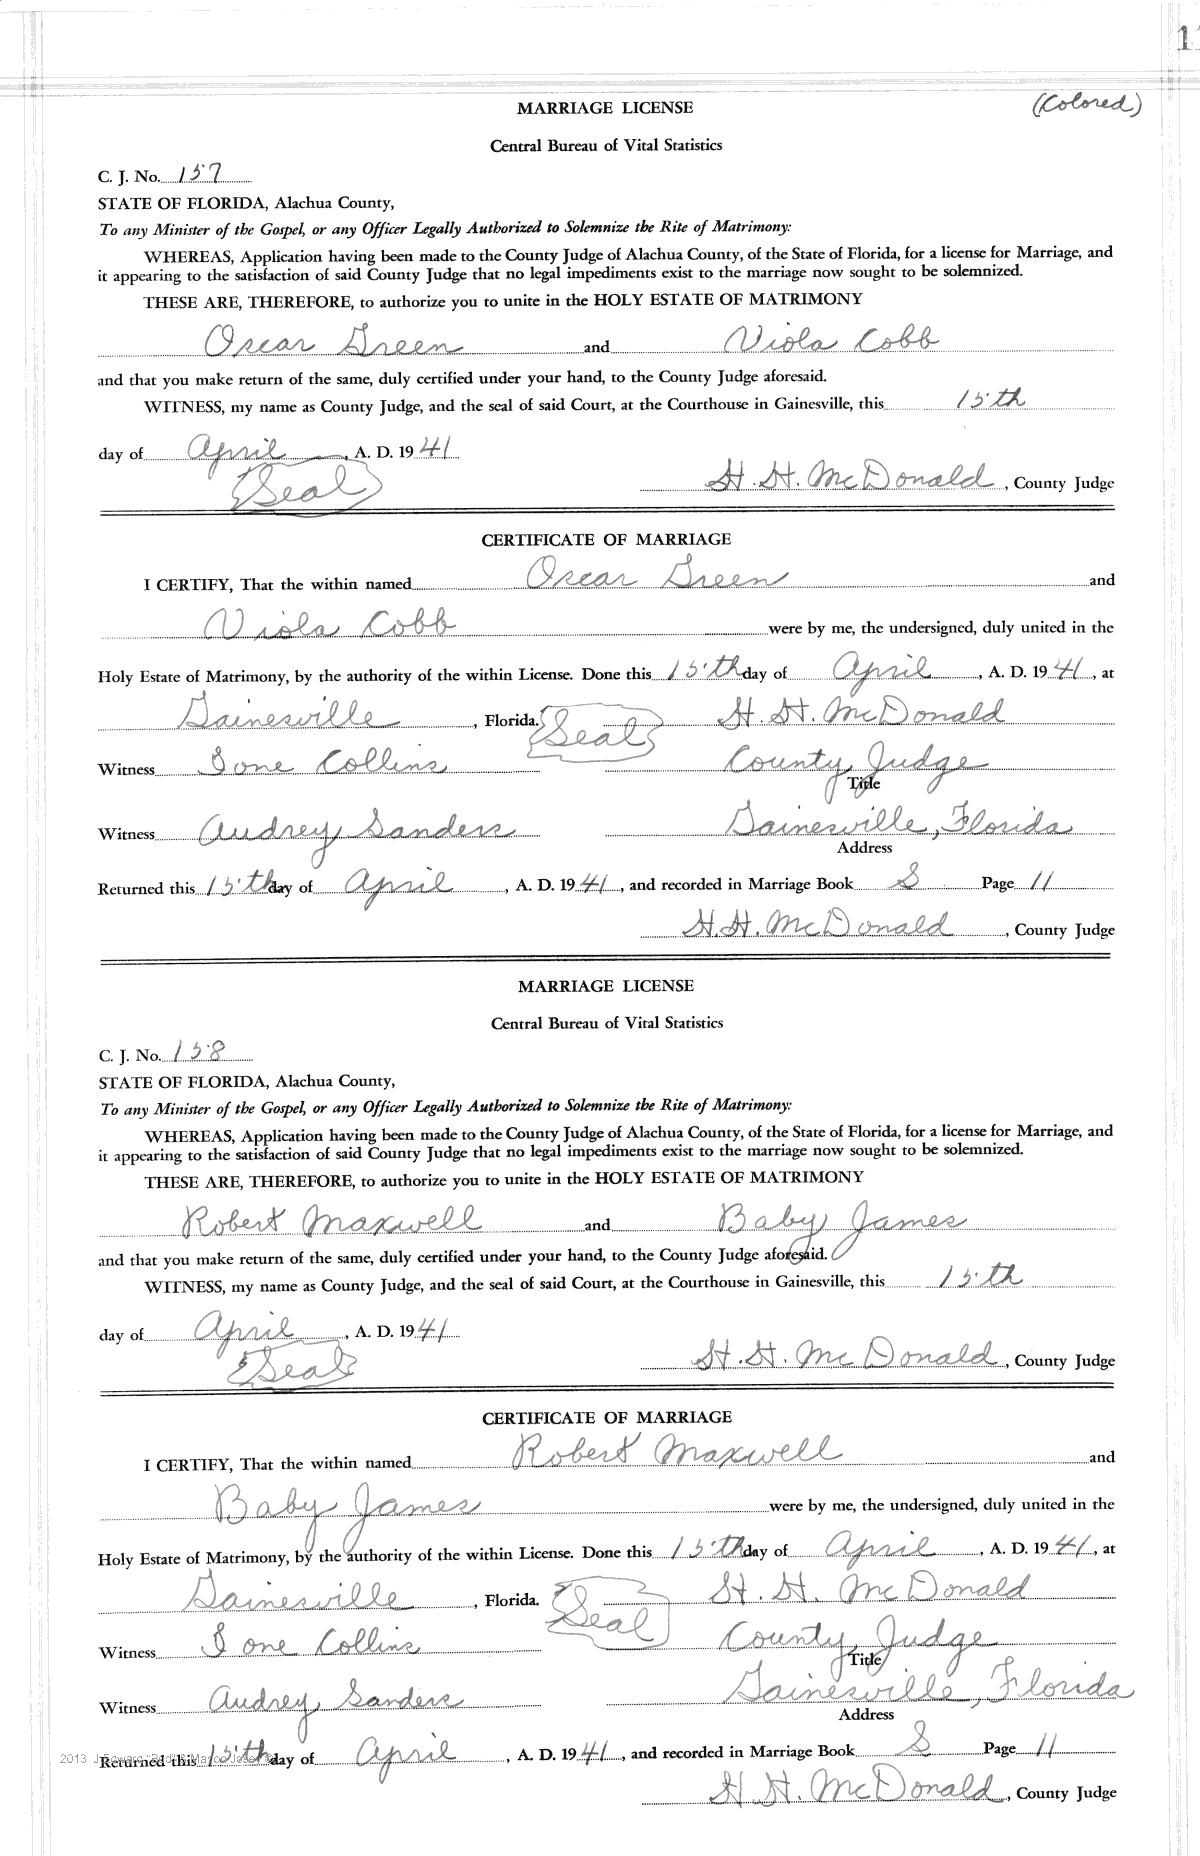 (Colored)
MARRIAGE LICENSE
Central Bureau of Vital Statistics
C. J. No. 157
STATE OF FLORIDA, Alachua County,
To any Minister of the Gospel, or any Officer Legally Authorized to Solemnize the Rite of Matrimony:
WHEREAS, Application having been made to the County Judge of Alachua County, of the State of Florida, for a license for Marriage, and
it appearing to the satisfaction of said County Judge that no legal impediments exist to the marriage now sought to be solemnized.
THESE ARE, THEREFORE, to authorize you to unite in the HOLY ESTATE OF MATRIMONY
Oscar Green and Viola Cobb
and that you make return of the same, duly certified under your hand, to the County Judge aforesaid.
WITNESS, my name as County Judge, and the seal of said Court, at the Courthouse in Gainesville, this 15th
day of April, A. D. 1941
Seal H. H. McDonald, County Judge
CERTIFICATE OF MARRIAGE
I CERTIFY, That the within named Oscar Green and
Viola Cobb were by me, the undersigned, duly united in the
Holy Estate of Matrimony, by the authority of the within License. Done this 15th day of April, A. D. 1941, at
Gainesville, Florida. Seal H. H. McDonald
Witness Ione Collins County Judge
Title
Witness Audrey Sanders Gainesville, Florida
Address
Returned this 15th day of April, A. D. 1941, and recorded in Marriage Book S Page 11
H. H. McDonald, County Judge
MARRIAGE LICENSE
Central Bureau of Vital Statistics
C. J. No. 158
STATE OF FLORIDA, Alachua County,
To any Minister of the Gospel, or any Officer Legally Authorized to Solemnize the Rite of Matrimony:
WHEREAS, Application having been made to the County Judge of Alachua County, of the State of Florida, for a license for Marriage, and
it appearing to the satisfaction of said County Judge that no legal impediments exist to the marriage now sought to be solemnized.
THESE ARE, THEREFORE, to authorize you to unite in the HOLY ESTATE OF MATRIMONY
Robert Maxwell and Baby James
and that you make return of the same, duly certified under your hand, to the County Judge aforesaid.
WITNESS, my name as County Judge, and the seal of said Court, at the Courthouse in Gainesville, this 15th
day of April, A. D. 1941
Seal H. H. McDonald, County Judge
CERTIFICATE OF MARRIAGE
I CERTIFY, That the within named Robert Maxwell and
Baby James were by me, the undersigned, duly united in the
Holy Estate of Matrimony, by the authority of the within License. Done this 15th day of April, A. D. 1941, at
Gainesville, Florida. Seal H. H. McDonald
Witness Ione Collins County Judge
Title
Witness Audrey Sanders Gainesville, Florida
Address
2013
Returned this 15th day of April, A. D. 1941, and recorded in Marriage Book S Page 11
H. H. McDonald, County Judge